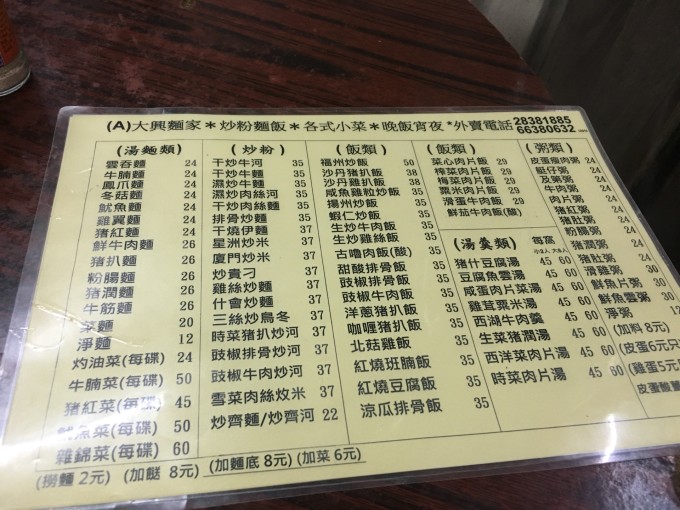 (A)大興麵家＊炒粉麵飯＊各式小菜＊晚飯宵夜*外賣電話 28381885
66380632
(湯麵類)
雲吞麵 24
牛腩麵 24
鳳爪麵 24
冬菇麵 24
魷魚麵 24
雞翼麵 24
猪紅麵 24
鮮牛肉麵 26
猪扒麵 26
粉腸麵 26
猪潤麵 26
牛筋麵 26
菜麵 20
淨麵 12
灼油菜(每碟) 24
牛腩菜(每碟) 50
猪紅菜(每碟) 45
魷魚菜(每碟) 50
雜錦菜(每碟) 60
(炒粉)
干炒牛河 35
干炒牛麵 35
濕炒牛河 35
濕炒肉絲河 35
干炒肉絲麵 35
排骨炒麵 35
干燒伊麵 35
星洲炒米 37
廈門炒米 37
炒貴刁 37
雞絲炒麵 37
什會炒麵 37
三絲炒烏冬 37
時菜猪扒炒河 37
豉椒排骨炒河 37
豉椒牛肉炒河 37
雪菜肉絲炆米 37
炒齊麵/炒齊河 22
(飯類)
福州炒飯 50
沙丹猪扒飯 38
沙丹雞扒飯 38
咸魚雞粒炒飯 35
揚州炒飯 35
蝦仁炒飯 35
生炒牛肉飯 35
生炒雞絲飯 35
古嚕肉飯(酸) 35
甜酸排骨飯 35
豉椒排骨飯 35
豉椒牛肉飯 35
洋蔥猪扒飯 35
咖喱猪扒飯 35
北菇雞飯 35
紅燒班腩飯 35
紅燒豆腐飯 35
涼瓜排骨飯 35
(飯類)
菜心肉片飯 29
榨菜肉片飯 29
梅菜肉片飯 29
粟米肉片飯 29
滑蛋牛肉飯 29
鮮茄牛肉飯(酸)
(湯羹類) 每窩
猪什豆腐湯 45 60
豆腐魚雲湯 45 60
咸蛋肉片菜湯 45 60
雞茸粟米湯 45 60
西湖牛肉羹 45 60
生菜猪潤湯 45 60
西洋菜肉片湯 45 60
時菜肉片湯 45 60
(粥類)
皮蛋瘦肉粥 24
艇仔粥 24
及第粥 24
牛肉粥 24
肉片粥 24
猪紅粥 24
猪肚粥 24
粉腸粥 24
猪潤粥 24
滑雞粥 30
鮮魚片粥 30
鮮魚雲粥 30
淨粥 12
(加料 8元)
(皮蛋 6元
(雞蛋 5元
(撈麵 2元) (加餸 8元) (加麵底 8元) (加菜 6元)